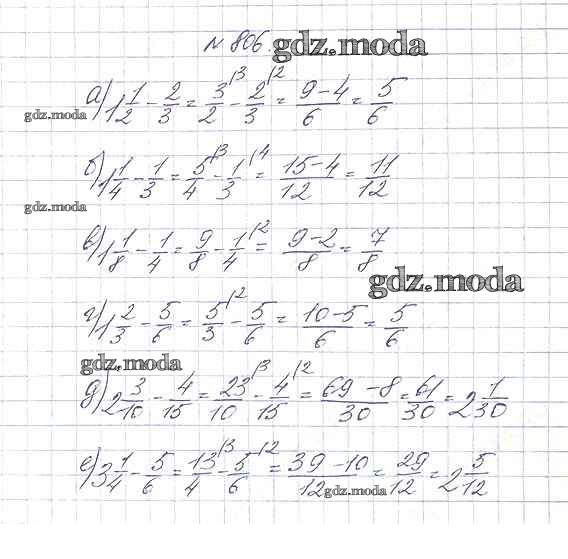 № 806. gdz.moda
а) 1 1/2 - 2/3 = 3/2 |3 - 2/3 |2 = 9-4/6 = 5/6
gdz.moda
б) 1 1/4 - 1/3 = 5/4 |3 - 1/3 |4 = 15-4/12 = 11/12
gdz.moda
в) 1 1/8 - 1/4 = 9/8 - 1/4 |2 = 9-2/8 = 7/8
gdz.moda
г) 1 2/3 - 5/6 = 5/3 |2 - 5/6 = 10-5/6 = 5/6
gdz.moda
д) 2 3/10 - 4/15 = 23/10 |3 - 4/15 |2 = 69-8/30 = 61/30 = 2 1/30
е) 3 1/4 - 5/6 = 13/4 |3 - 5/6 |2 = 39-10/12 = 29/12 = 2 5/12
gdz.moda